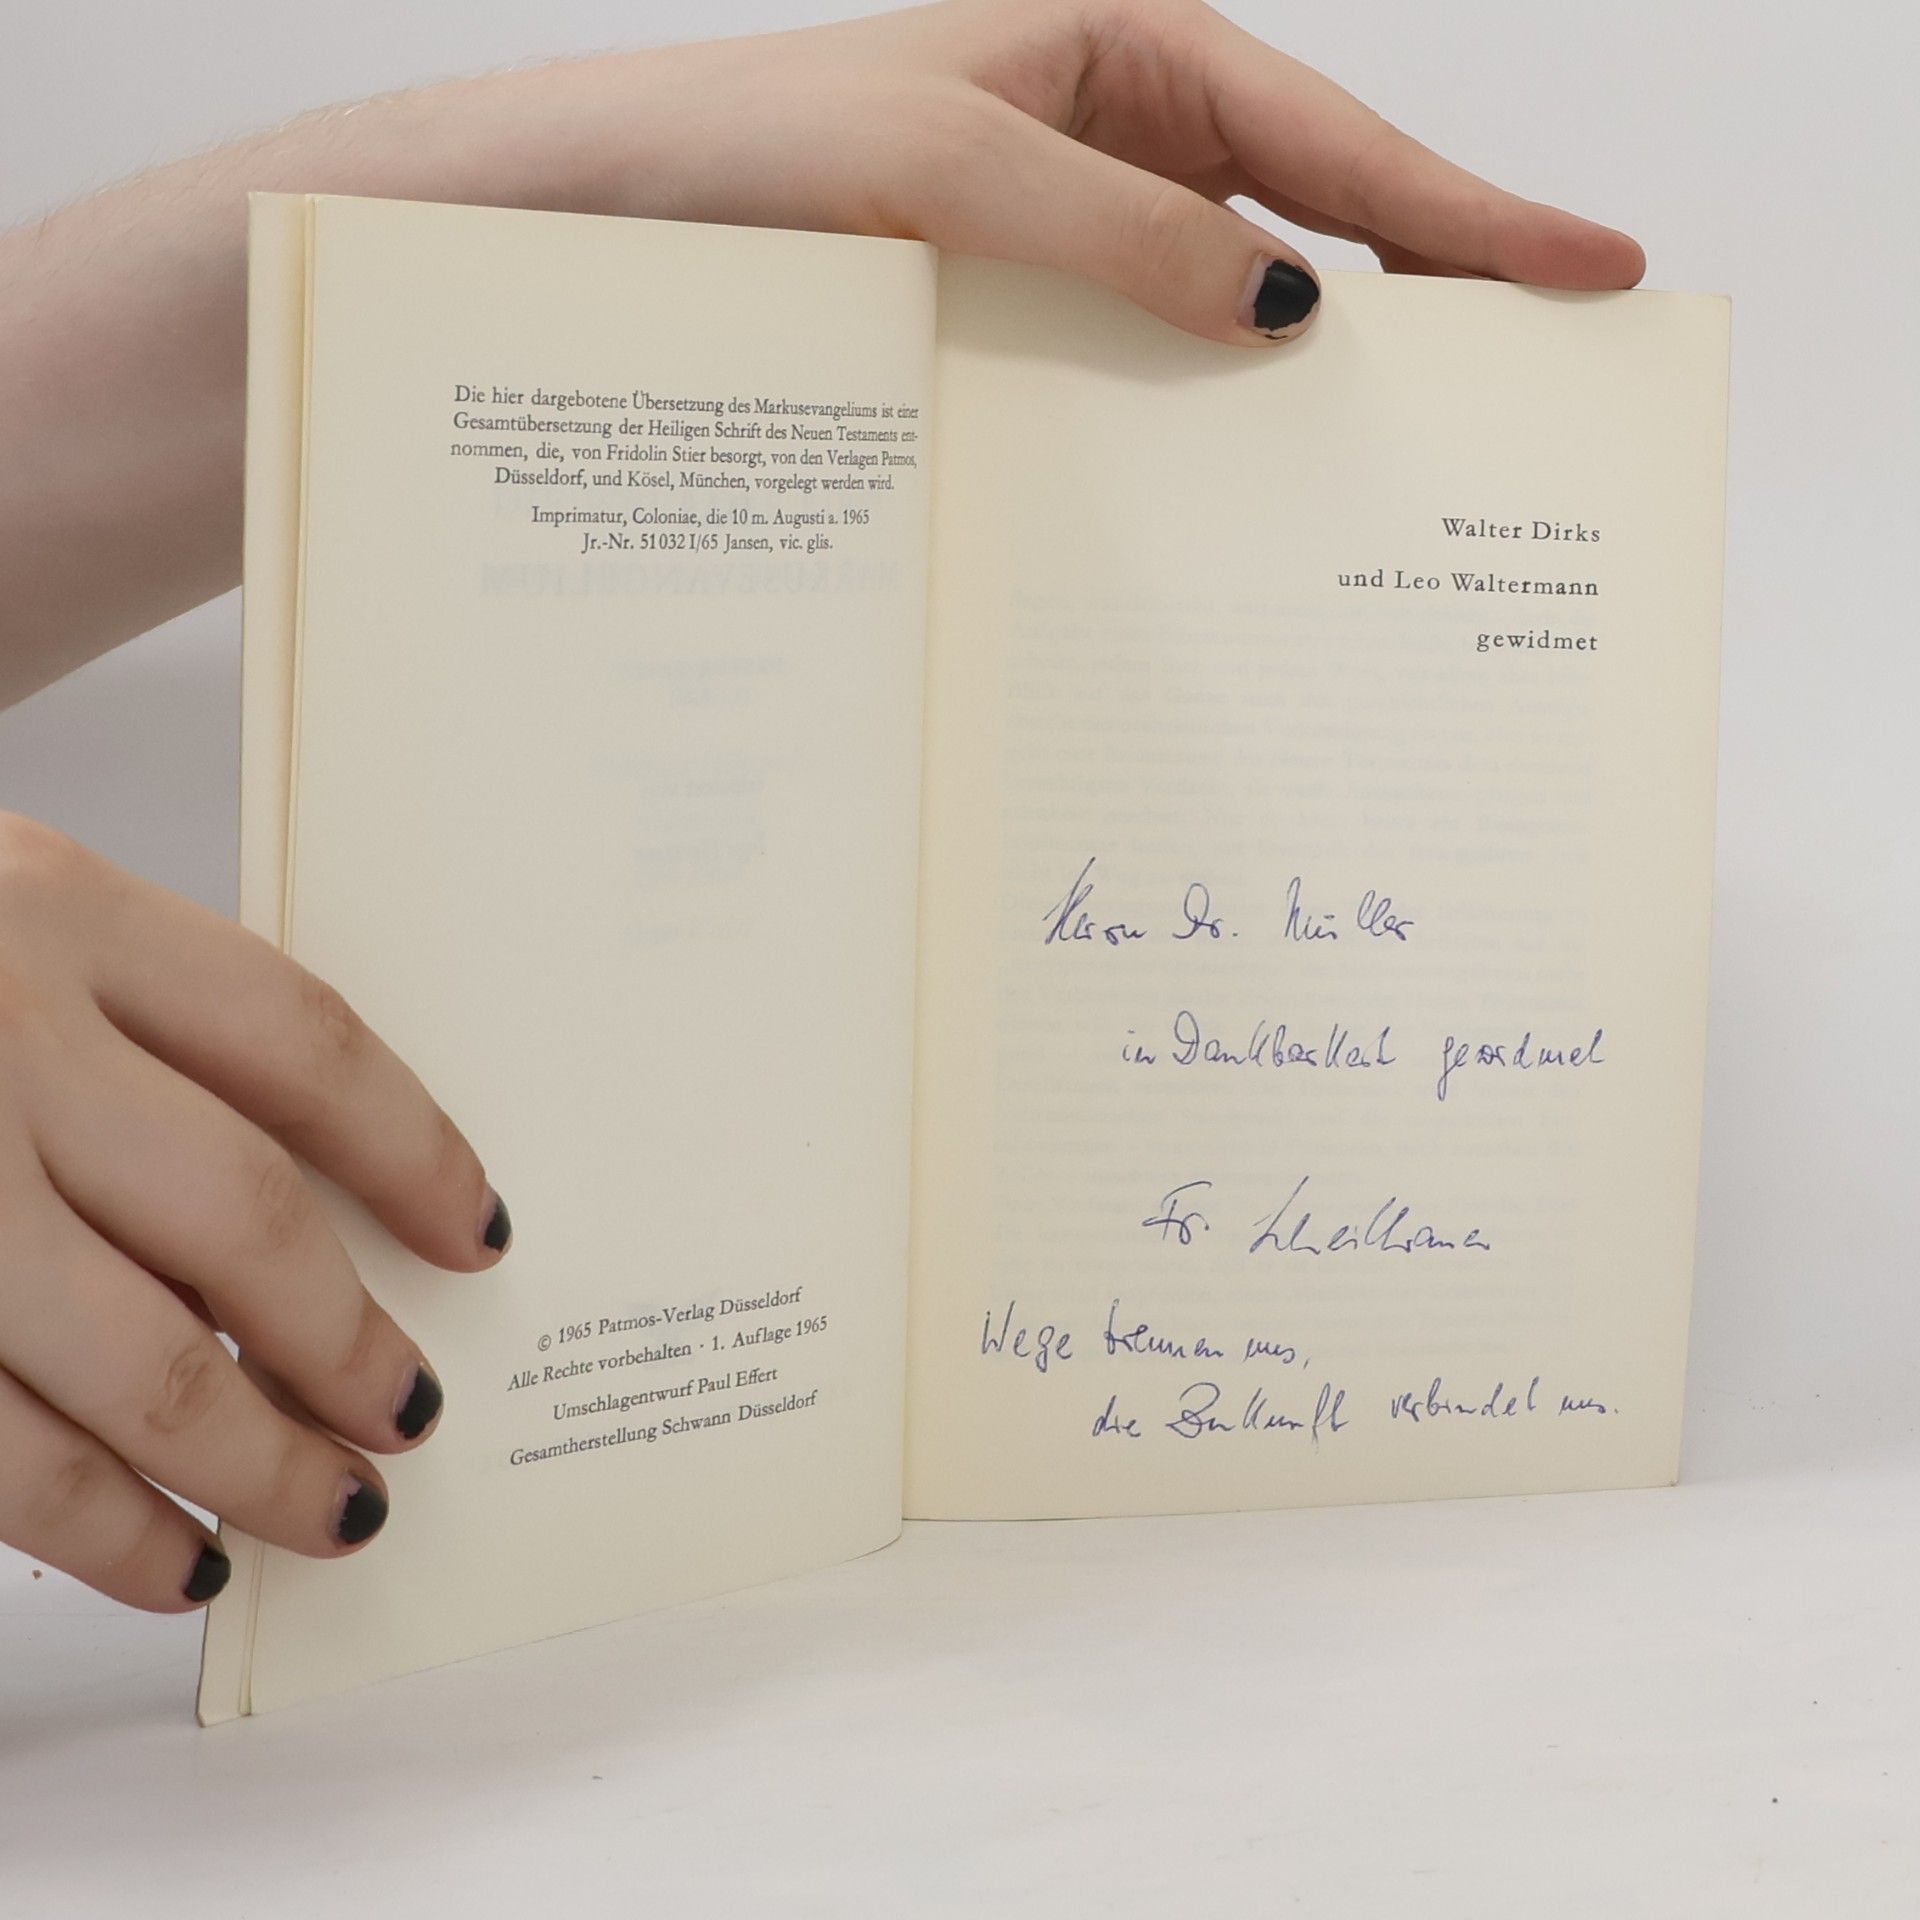 Die hier dargebotene Übersetzung des Markusevangeliums ist einer
Gesamtübersetzung der Heiligen Schrift des Neuen Testaments ent-
nommen, die, von Fridolin Stier besorgt, von den Verlagen Patmos,
Düsseldorf, und Kösel, München, vorgelegt werden wird.
Imprimatur, Coloniae, die 10 m. Augusti a. 1965
Jr.-Nr. 51032 I/65 Jansen, vic. glis.
© 1965 Patmos-Verlag Düsseldorf
Alle Rechte vorbehalten · 1. Auflage 1965
Umschlagentwurf Paul Effert
Gesamtherstellung Schwann Düsseldorf
Walter Dirks
und Leo Waltermann
gewidmet
Herrn Dr. Müller
in Dankbarkeit gewidmet
Fr.
Wege trennen uns,
die Zukunft verbindet uns.